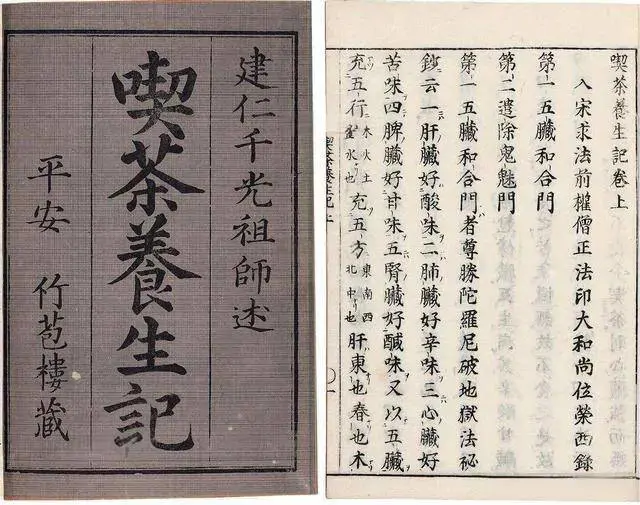 建仁千光祖師述
喫茶養生記
平安 竹苞樓藏
喫茶養生記卷上
入宋求法前權僧正法印大和尚位榮西錄
第一五臟和合門
第二遣除鬼魅門
第一五臟和合門者尊勝陀羅尼破地獄法祕
鈔云一肝臟好酸味二肺臟好辛味三心臟好
苦味四脾臟好甘味五腎臟好鹹味又以五臟
充五行木火土金水也充五方東南西北中也肝東也春也木